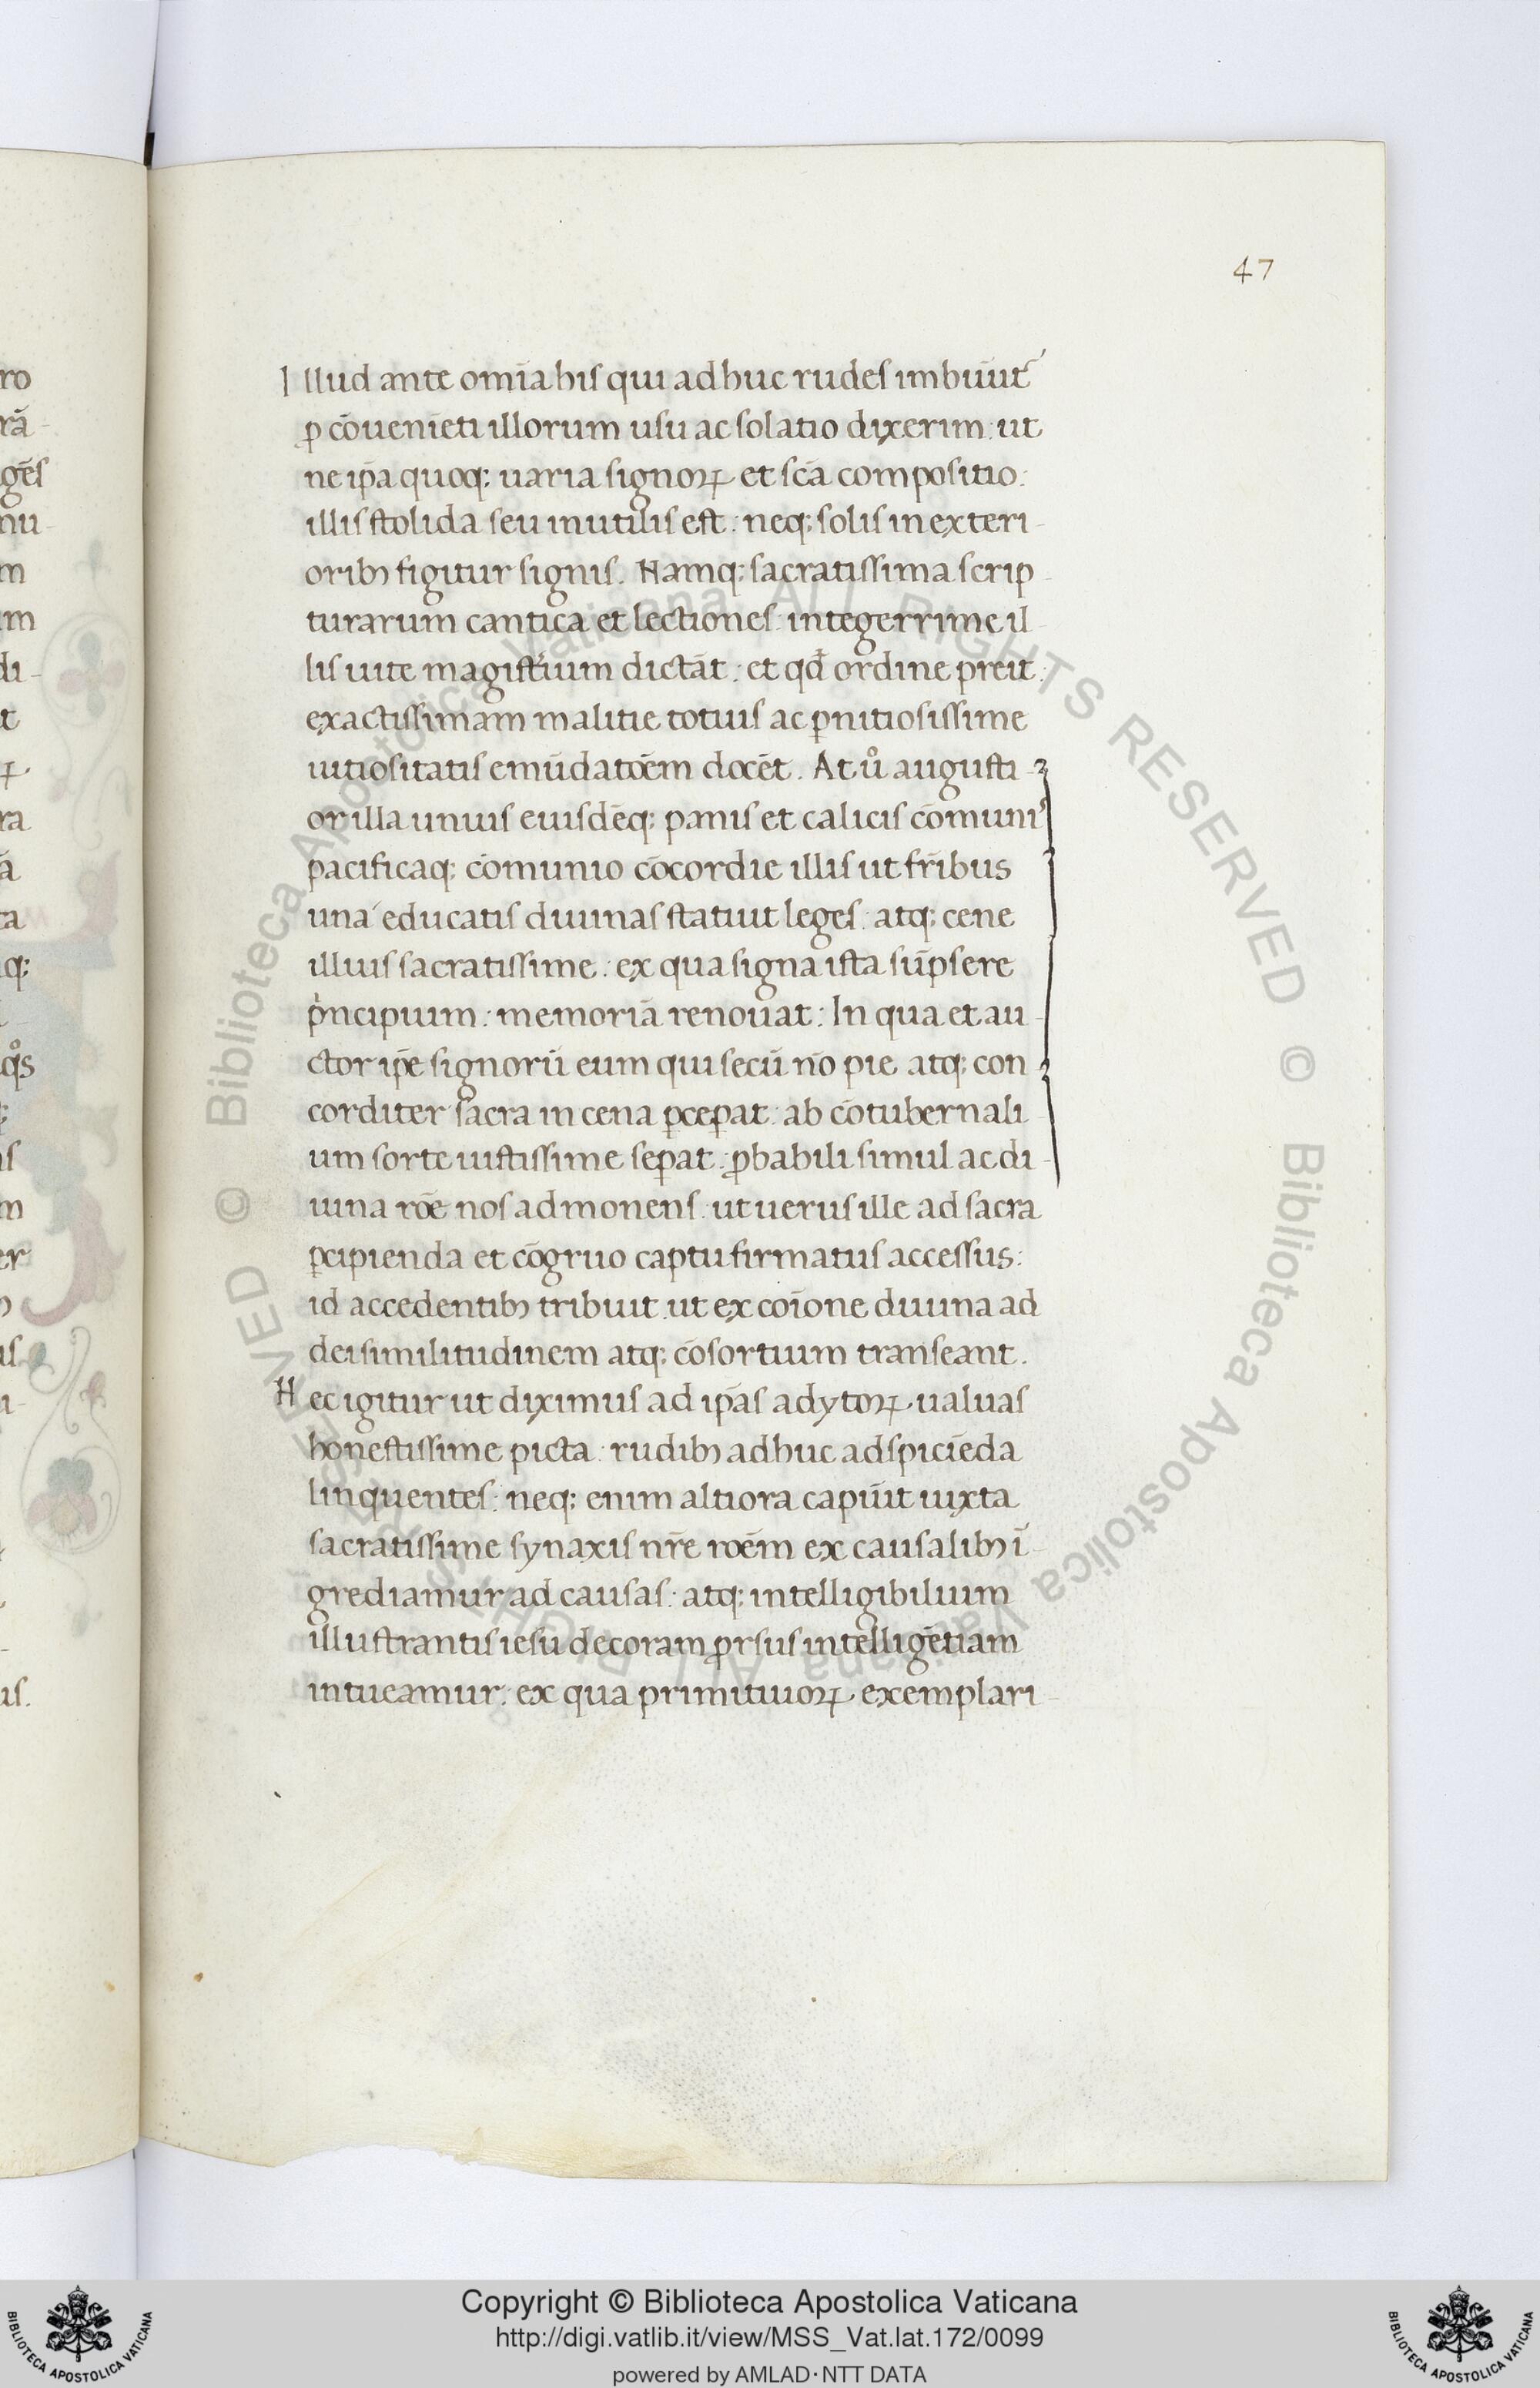 47
Illud ante om̄ia his qui adhuc rudes imbuūt᷑
ꝓ cōueniēti illorum usu ac solatio dixerim: ut
ne ip̄a quoq; uaria signoꝝ et sc̄a compositio:
illis stolida seu inutilis est: neq; solis in exteri-
orib; figitur signis. Namq; sacratissima scrip-
turarum cantica et lectiones: integerrime il-
lis uite magisterium dictāt: et qd̄ ordine preit:
exactissimam malitie totius ac ꝑnitiosissime
uitiositatis emūdatōem docēt. At uͦ augusti-
or illa unius eiusdēq; panis et calicis cōmunis
pacificaq; cōmunio cōcordie illis ut fr̄ibus
una educatis diuinas statuit leges: atq; cene
illius sacratissime: ex qua signa ista sūpsere
pͥncipium: memoriā renouat: In qua et au-
ctor ip̄e signorū eum qui secū nō pie atq; con-
corditer sacra in cena ꝑceꝑat: ab cōtubernali-
um sorte iustissime seꝑat: ꝓbabili simul ac di-
uina rōe nos admonens: ut uerus ille ad sacra
ꝑcipienda et cōgruo captu firmatus accessus:
id accedentib; tribuit: ut ex coīone diuina ad
dei similitudinem atq; cōsortium transeant.
Hec igitur ut diximus ad ip̄as adytoꝝ ualuas
honestissime picta: rudib; adhuc adspiciēda
linquentes: neq; enim altiora capiūt iuxta
sacratissime synaxis nr̄e rōem ex causalib; ī-
grediamur ad causas: atq; intelligibilium
illustrantis iesu decoram ꝓrsus intelligētiam
intueamur: ex qua primitiuoꝝ exemplari-
ro
rā-
gēs
nu-
m
um
di-
t
ꝝ.
ra
ā
ta
q;
qͦs
m
er
us.
Copyright © Biblioteca Apostolica Vaticana
http://digi.vatlib.it/view/MSS_Vat.lat.172/0099
powered by AMLAD·NTT DATA
BIBLIOTECA APOSTOLICA VATICANA
BIBLIOTECA APOSTOLICA VATICANA
© Biblioteca Apostolica Vaticana ALL RIGHTS RESERVED
© Biblioteca Apostolica Vaticana ALL RIGHTS RESERVED